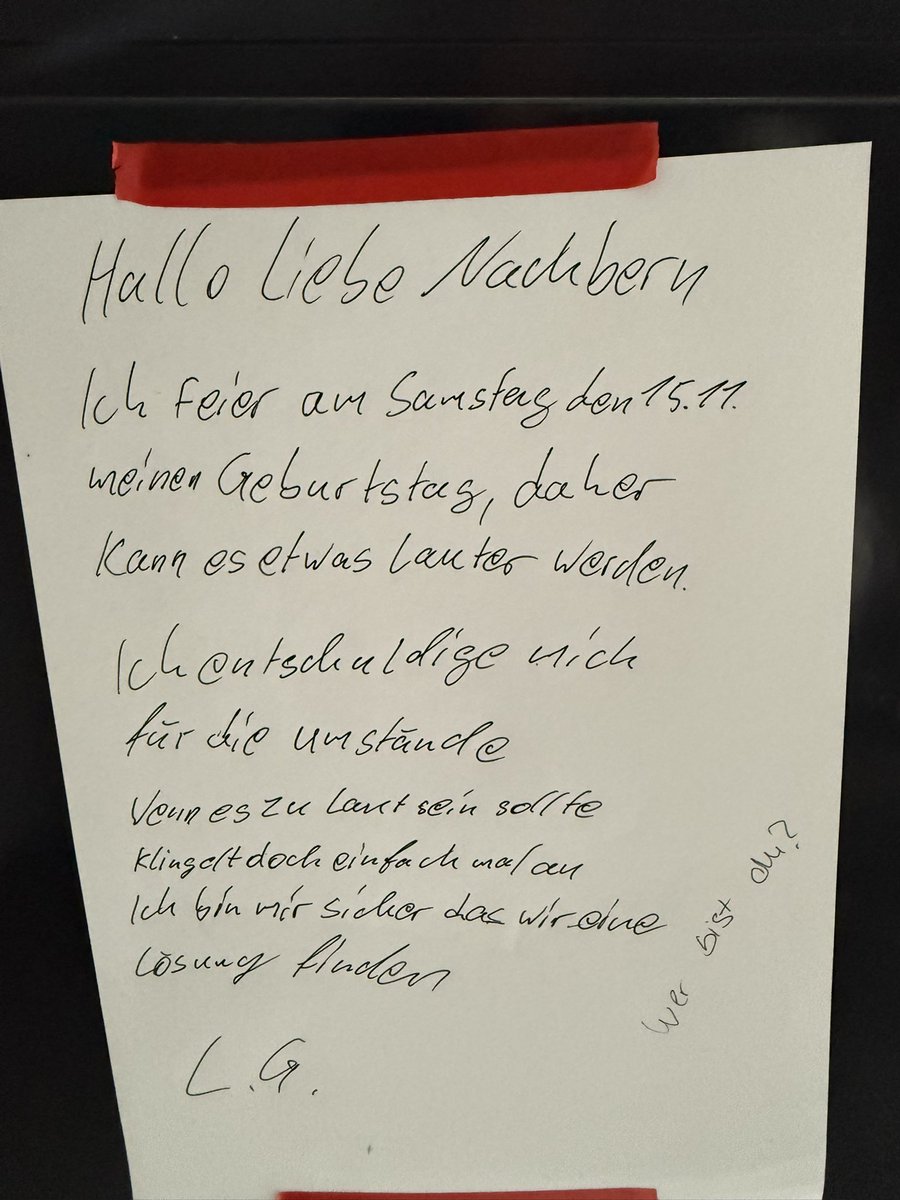 Hallo Liebe Nachbern
Ich feier am Samstag den 15.11.
meinen Geburtstag, daher
kann es etwas Lauter werden.
Ich entschuldige mich
für die umstände
Wenn es zu Laut sein sollte
klingelt doch einfach mal an
Ich bin mir sicher das wir eine
Lösung finden
L.G.
Wer bist du?